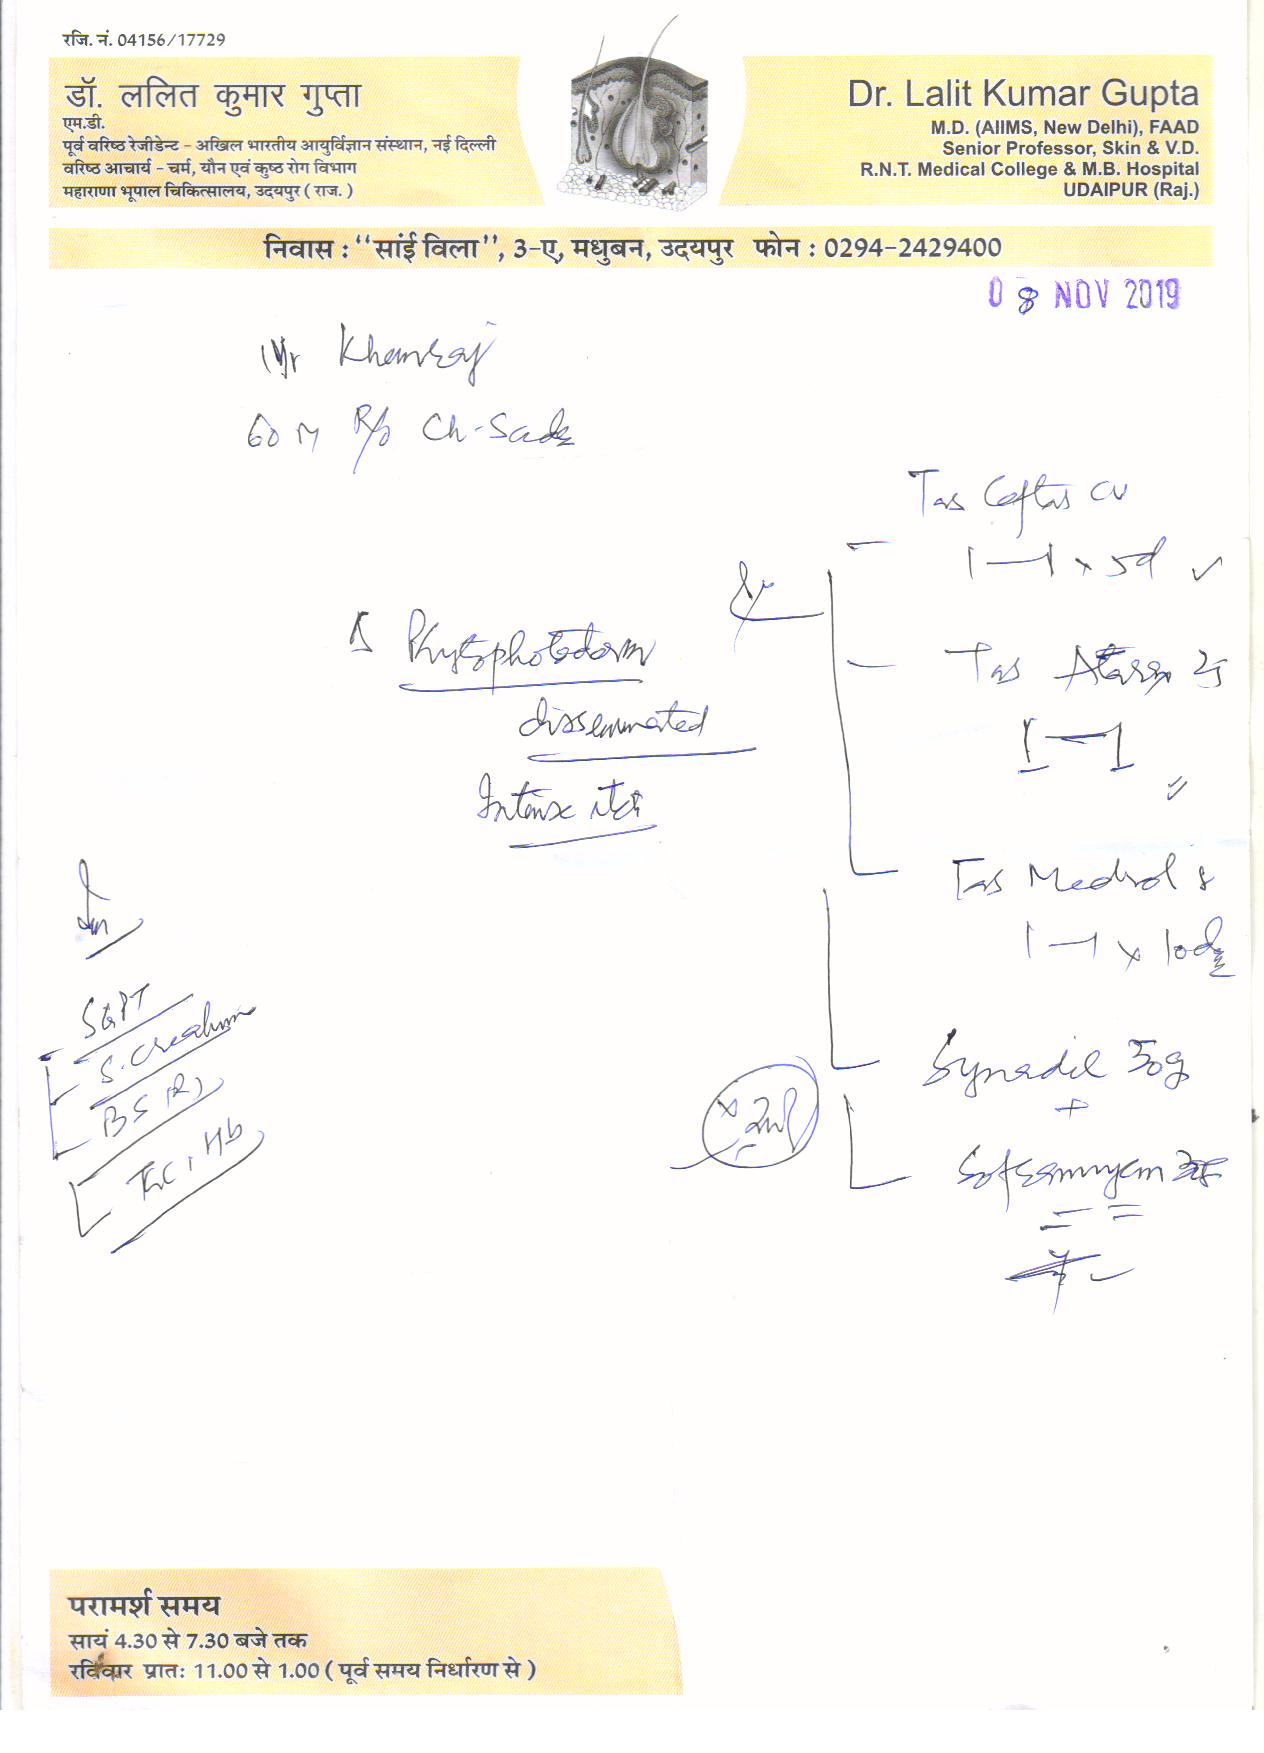 रजि. नं. 04156/17729
डॉ. ललित कुमार गुप्ता
एम.डी.
पूर्व वरिष्ठ रेजीडेन्ट - अखिल भारतीय आयुर्विज्ञान संस्थान, नई दिल्ली
वरिष्ठ आचार्य - चर्म, यौन एवं कुष्ठ रोग विभाग
महाराणा भूपाल चिकित्सालय, उदयपुर ( राज. )
Dr. Lalit Kumar Gupta
M.D. (AIIMS, New Delhi), FAAD
Senior Professor, Skin & V.D.
R.N.T. Medical College & M.B. Hospital
UDAIPUR (Raj.)
निवास : ‘‘सांई विला’’, 3-ए, मधुबन, उदयपुर फोन : 0294-2429400
08 NOV 2019
Mr Khemraj
60 M R/o Ch-Sadr
Tab Ceftas CV
1—1 x 5d
Δ Phytophotoderm
disseminated
Intense itch
Tab Atarax 25
1—1
Tab Medrol 8
1—1 x 10d
Inv
SGPT
S. Creatinine
BS (R)
TEC, Hb
Synadil 30g
+
Soframycin
परामर्श समय
सायं 4.30 से 7.30 बजे तक
रविवार प्रातः 11.00 से 1.00 ( पूर्व समय निर्धारण से )